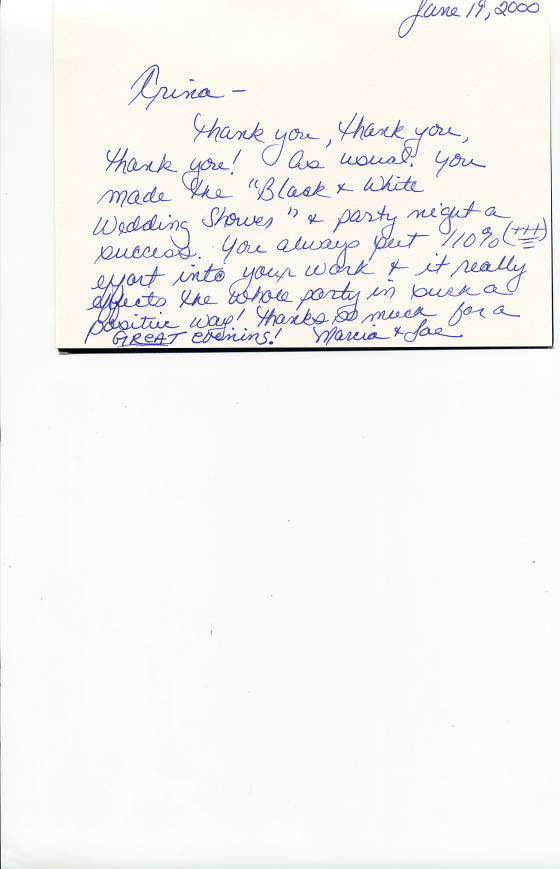 June 19, 2000
Crina -
Thank you, thank you,
thank you! As usual, you
made the "Black & White
Wedding Shower" & party night a
success. You always put 110% (+++)
effort into your work & it really
effects the whole party in such a
positive way! Thanks so much for a
GREAT evening! Marcia & Joe